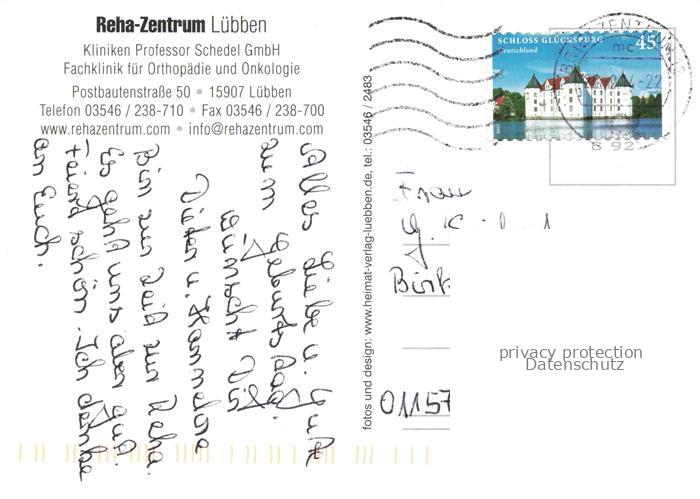 Reha-Zentrum Lübben
Kliniken Professor Schedel GmbH
Fachklinik für Orthopädie und Onkologie
Postbautenstraße 50 • 15907 Lübben
Telefon 03546 / 238-710 • Fax 03546 / 238-700
www.rehazentrum.com • info@rehazentrum.com
Alles Liebe u. Gute
zum Geburtstag
wünscht Dir
Dieter u. Hannelore
Bin zur Zeit zur Reha.
Es geht uns aber gut.
Feiert schön. Ich denke
an Euch.
fotos und design: www.heimat-verlag-luebben.de, tel.: 03546 / 2483
SCHLOSS GLÜCKSBURG 45
Deutschland
BRIEFZENTRUM
mc
B 92
Frau
G. K
Birk
01157
privacy protection
Datenschutz